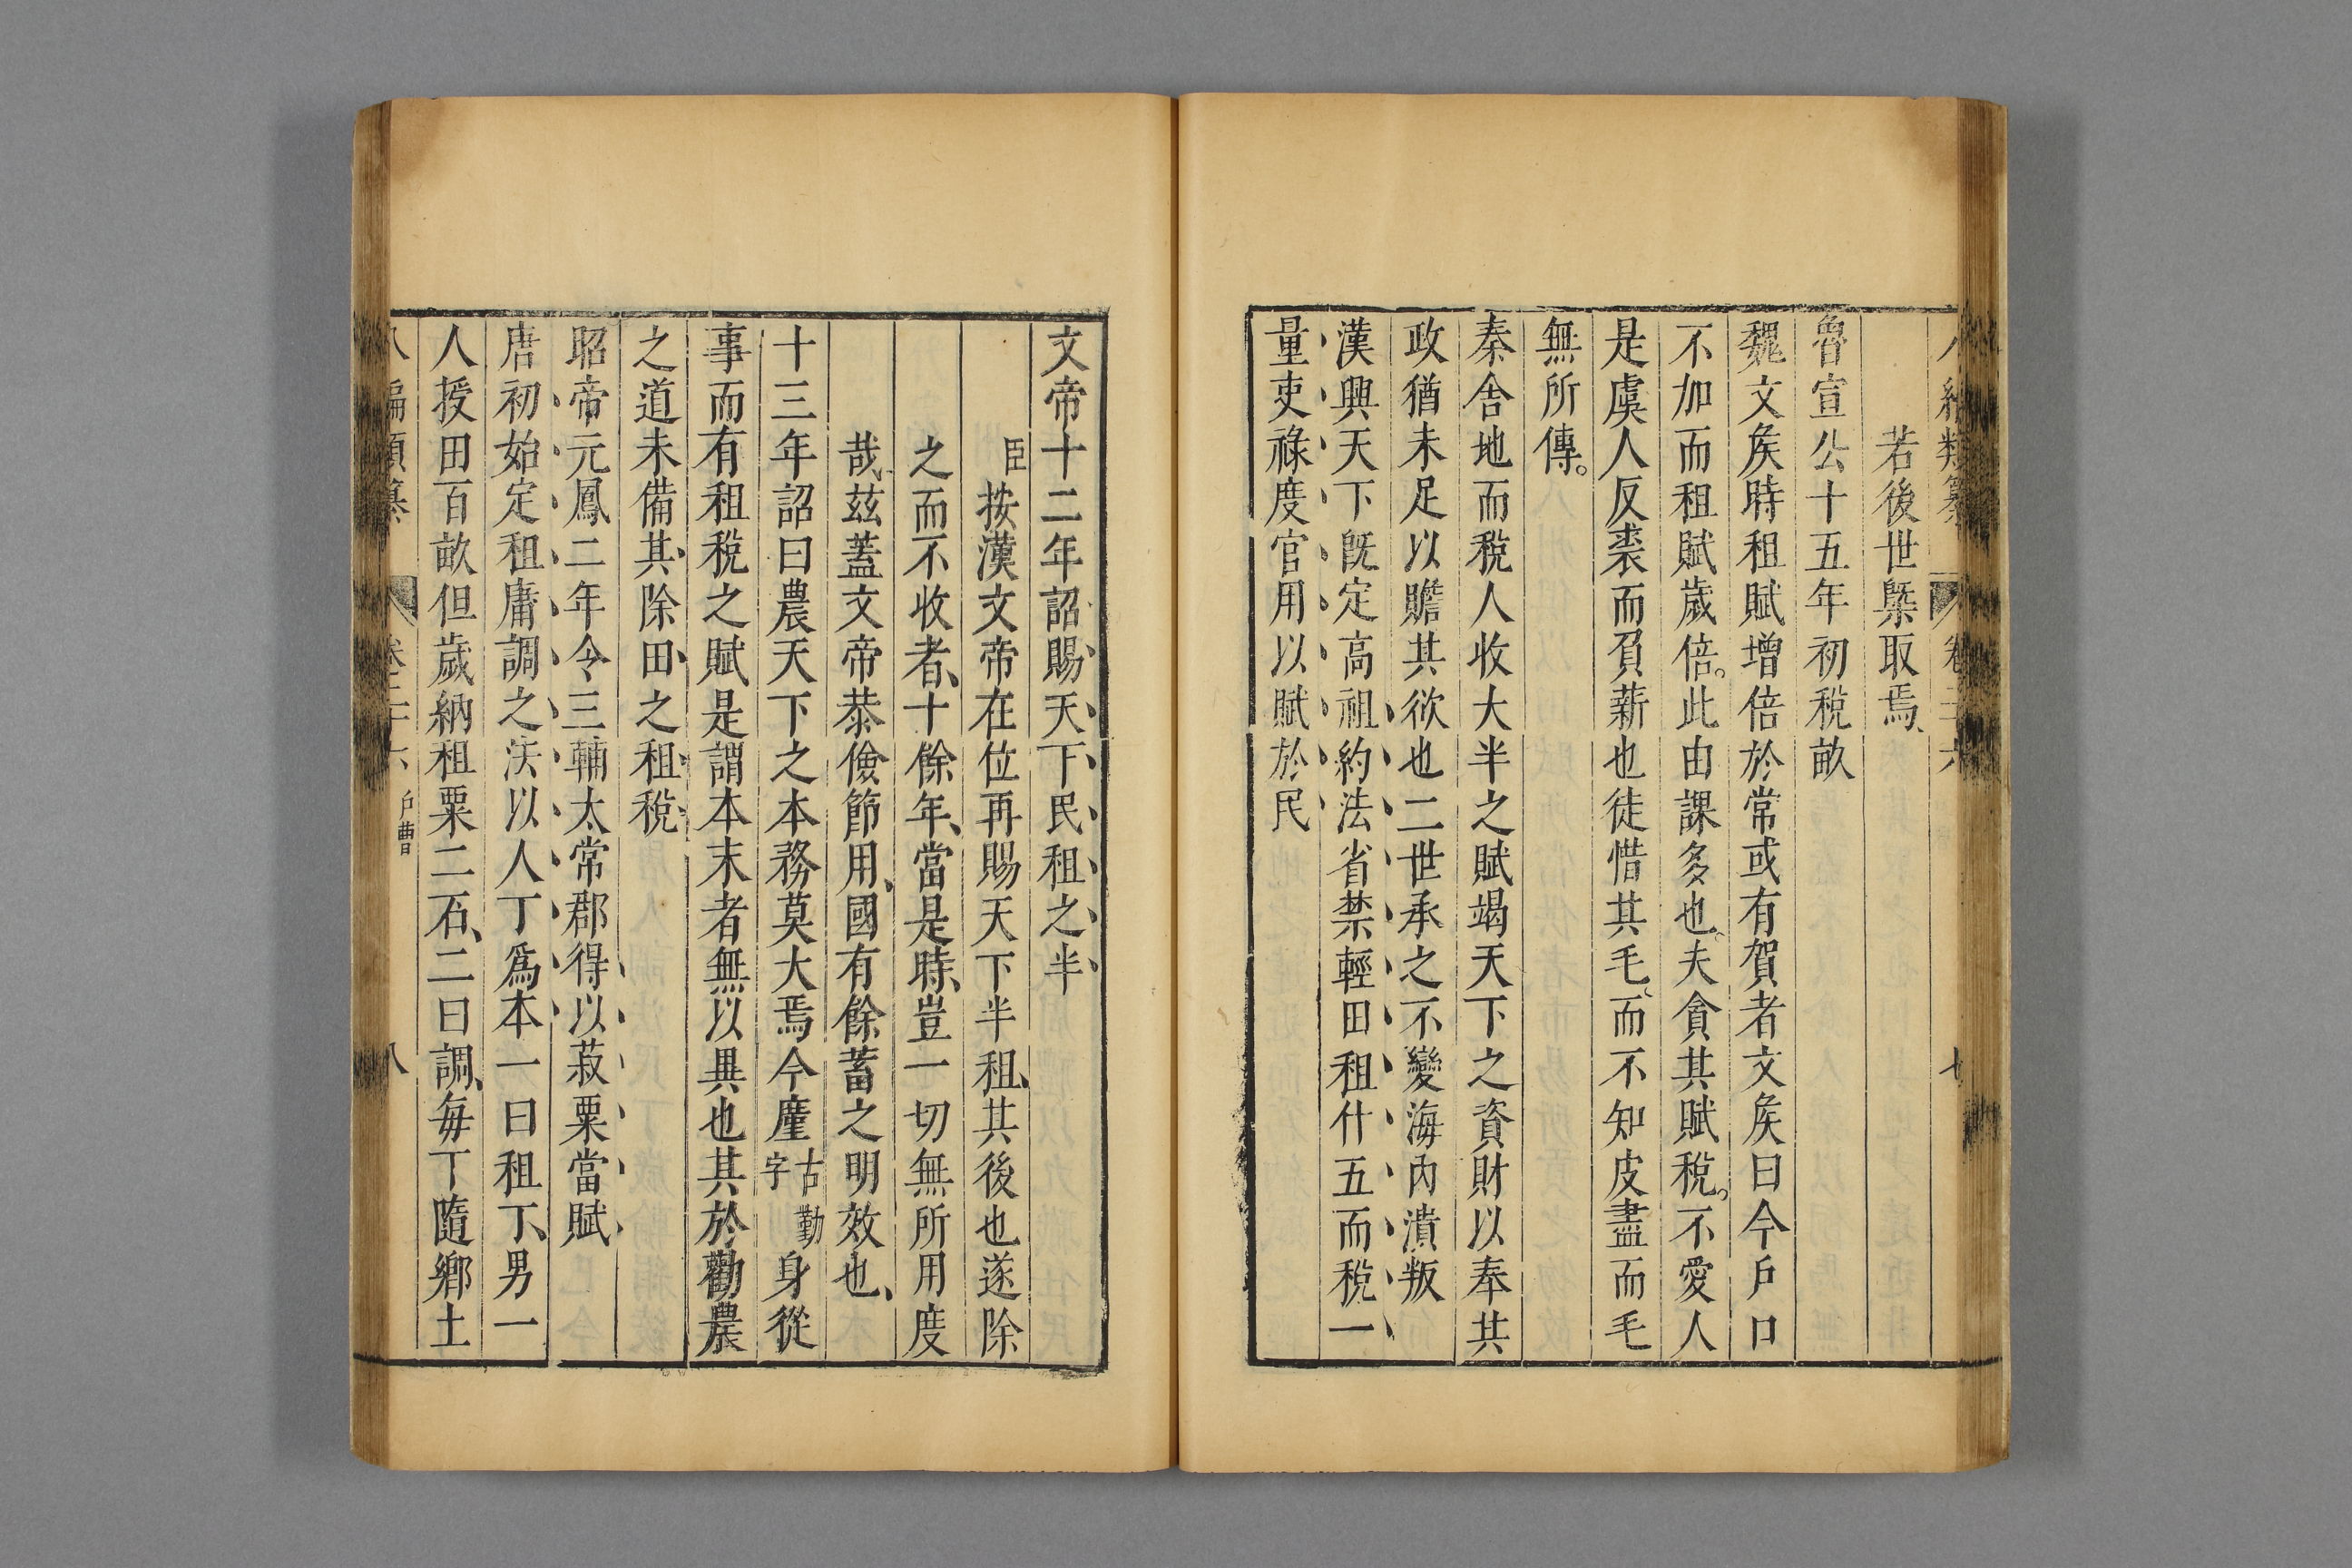 八編類纂 卷二十六 七
若後世槩取焉
魯宣公十五年初稅畝
魏文矦時租賦增倍於常或有賀者文矦曰今戶口
不加而租賦歲倍。此由課多也夫貪其賦稅。不愛人
是虞人反裘而負薪也徒惜其毛而不知皮盡而毛
無所傳。
秦舍地而稅人收大半之賦竭天下之資財以奉其
政猶未足以贍其欲也二世承之不變海內潰叛
漢興天下既定高祖約法省禁輕田租什五而稅一
量吏祿度官用以賦於民
文帝十二年詔賜天下民租之半
臣按漢文帝在位再賜天下半租、其後也遂除
之而不收者、十餘年、當是時、豈一切無所用度
哉茲蓋文帝恭儉節用、國有餘蓄之明效也、
十三年詔曰農天下之本務莫大焉今廑古勤字身從
事而有租稅之賦是謂本末者無以異也其於勸農
之道未備其除田之租稅
昭帝元鳳二年令三輔太常郡得以菽粟當賦
唐初始定租庸調之法以人丁爲本一曰租丁、男一
人授田百畝但歲納租粟二石、二曰調、每丁隨鄉土
八編類纂 卷二十六 戶曹 八